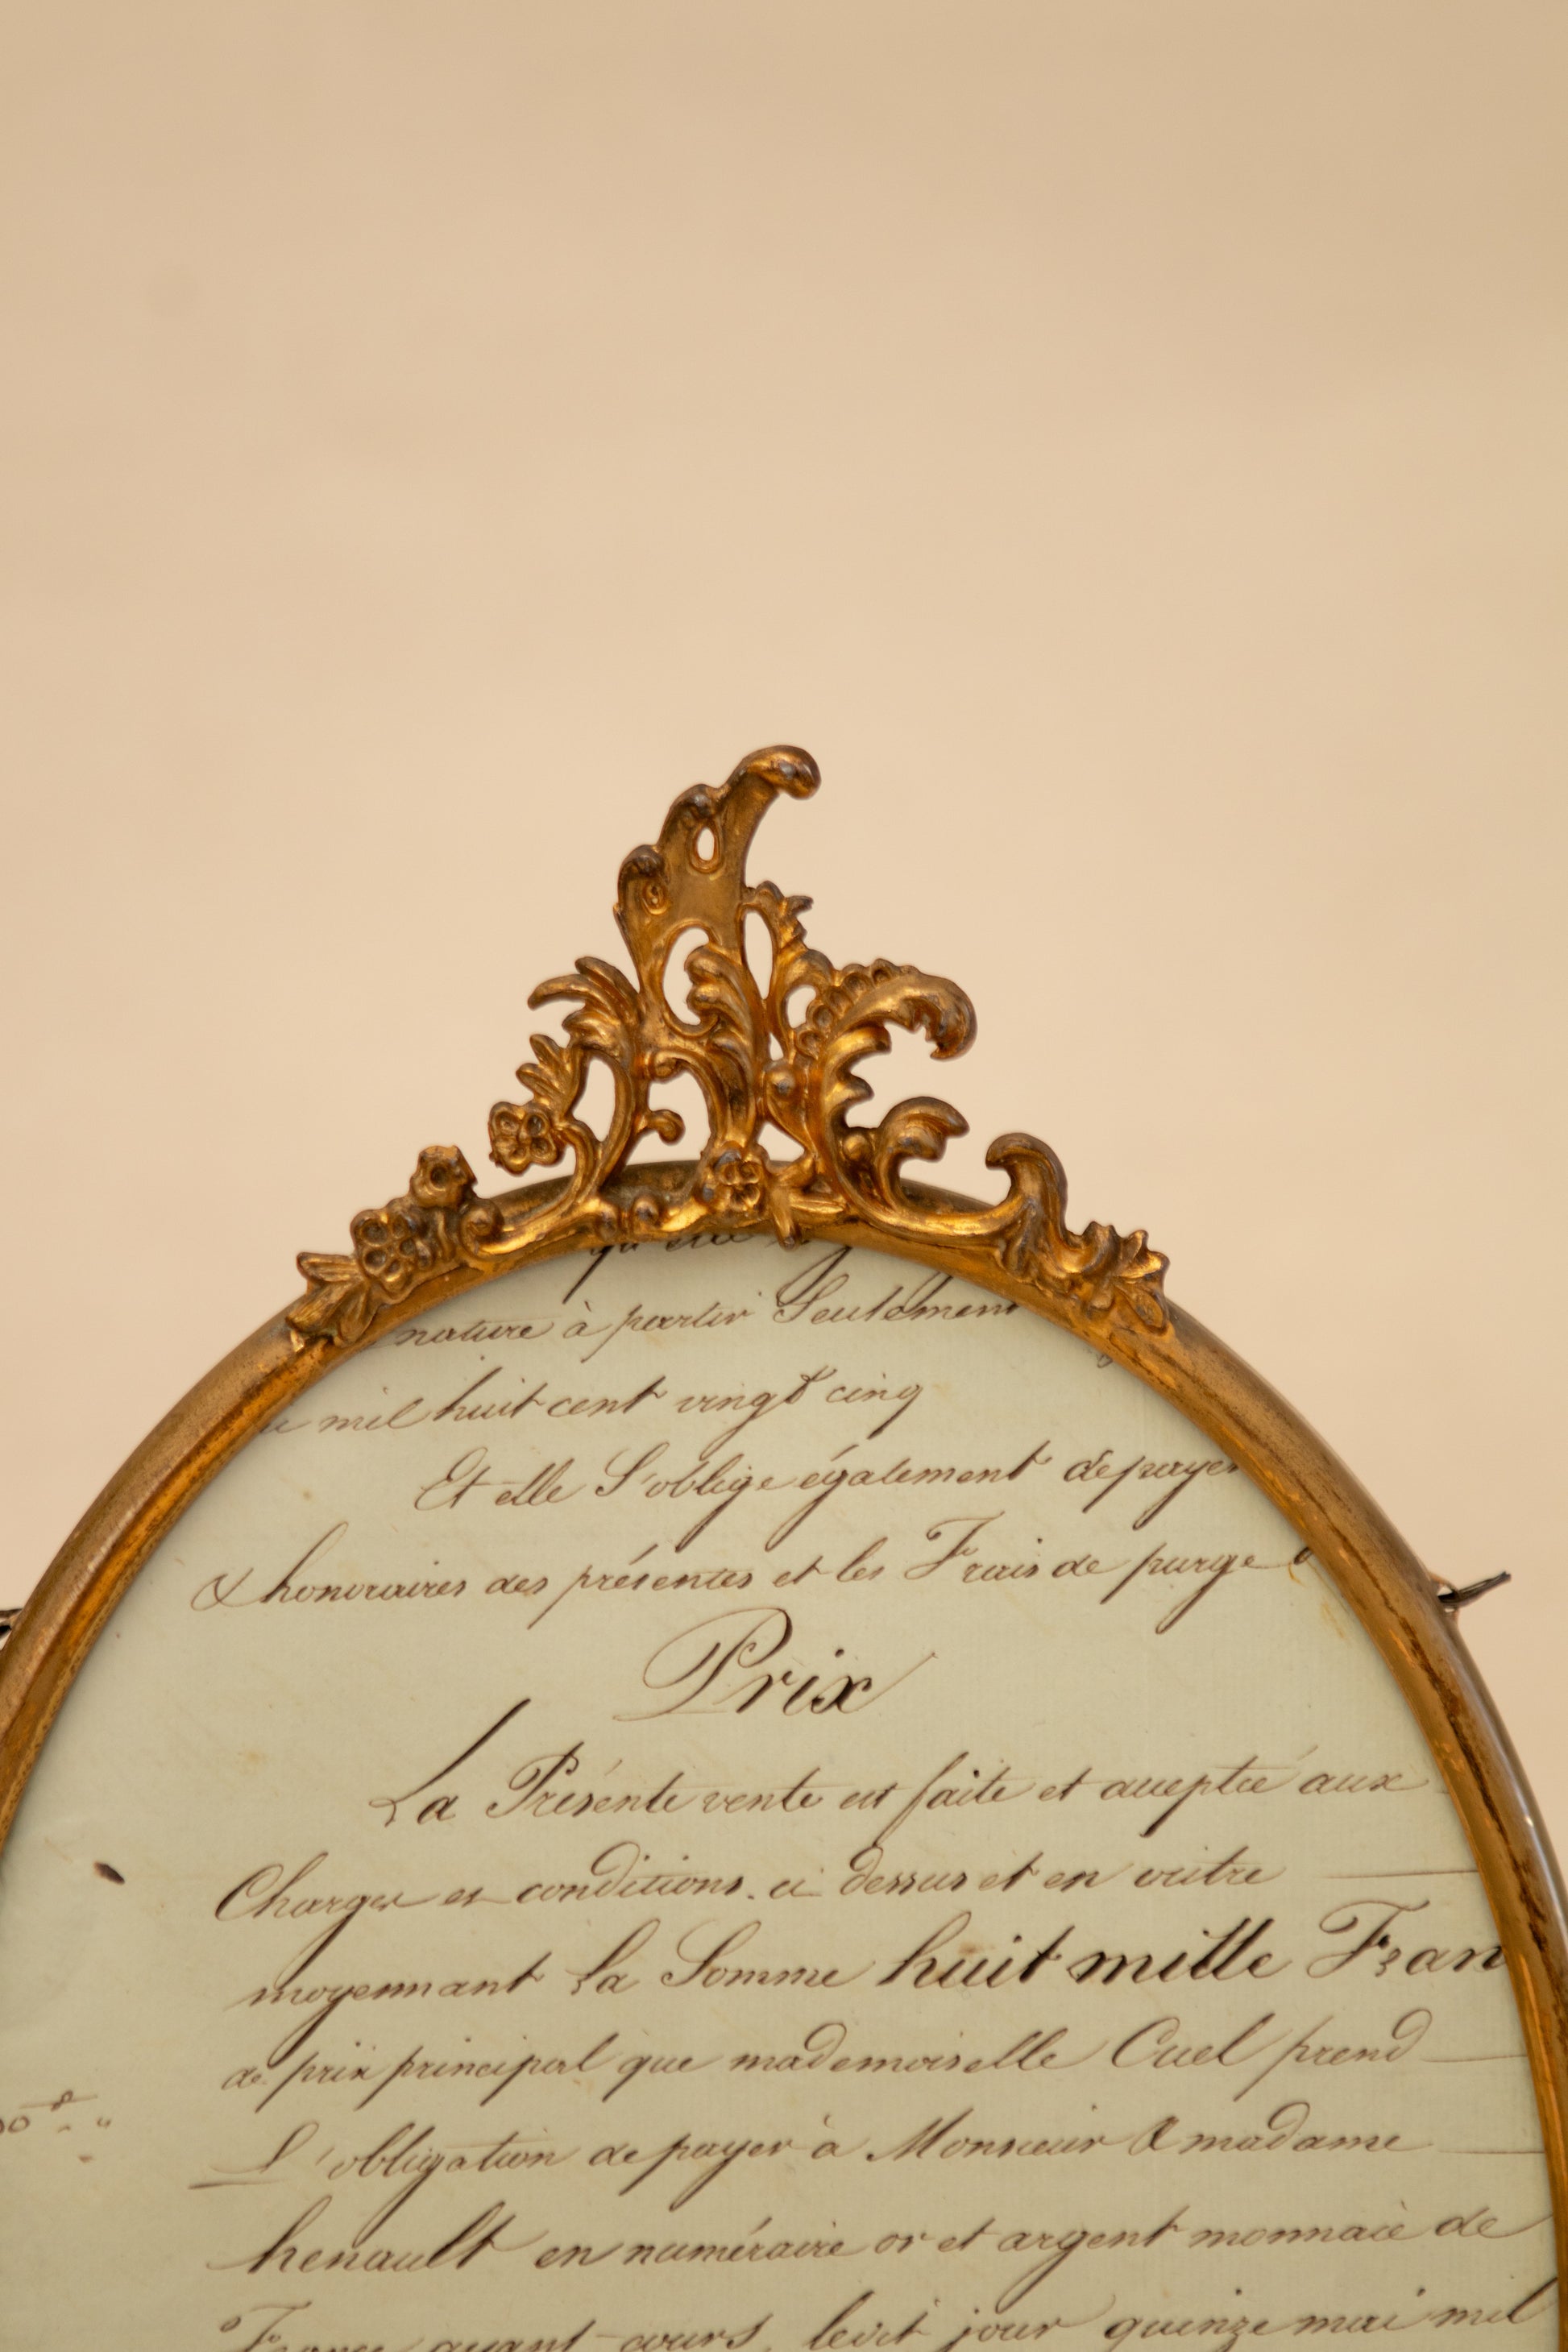 qu'elle
nature à partir Seulement
mil huit cent vingt cinq
Et elle S'oblige également de payer
& honoraires des présentes et les Frais de purge
Prix
La Présente vente est faite et acceptée aux
Charges et conditions. ci dessus et en outre
moyennant la Somme huit mille Fran
de prix principal que mademoiselle Cuel prend
L'obligation de payer à Monsieur & madame
henault en numéraire or et argent monnaie de
France ayant cours. ledit jour quinze mai mil